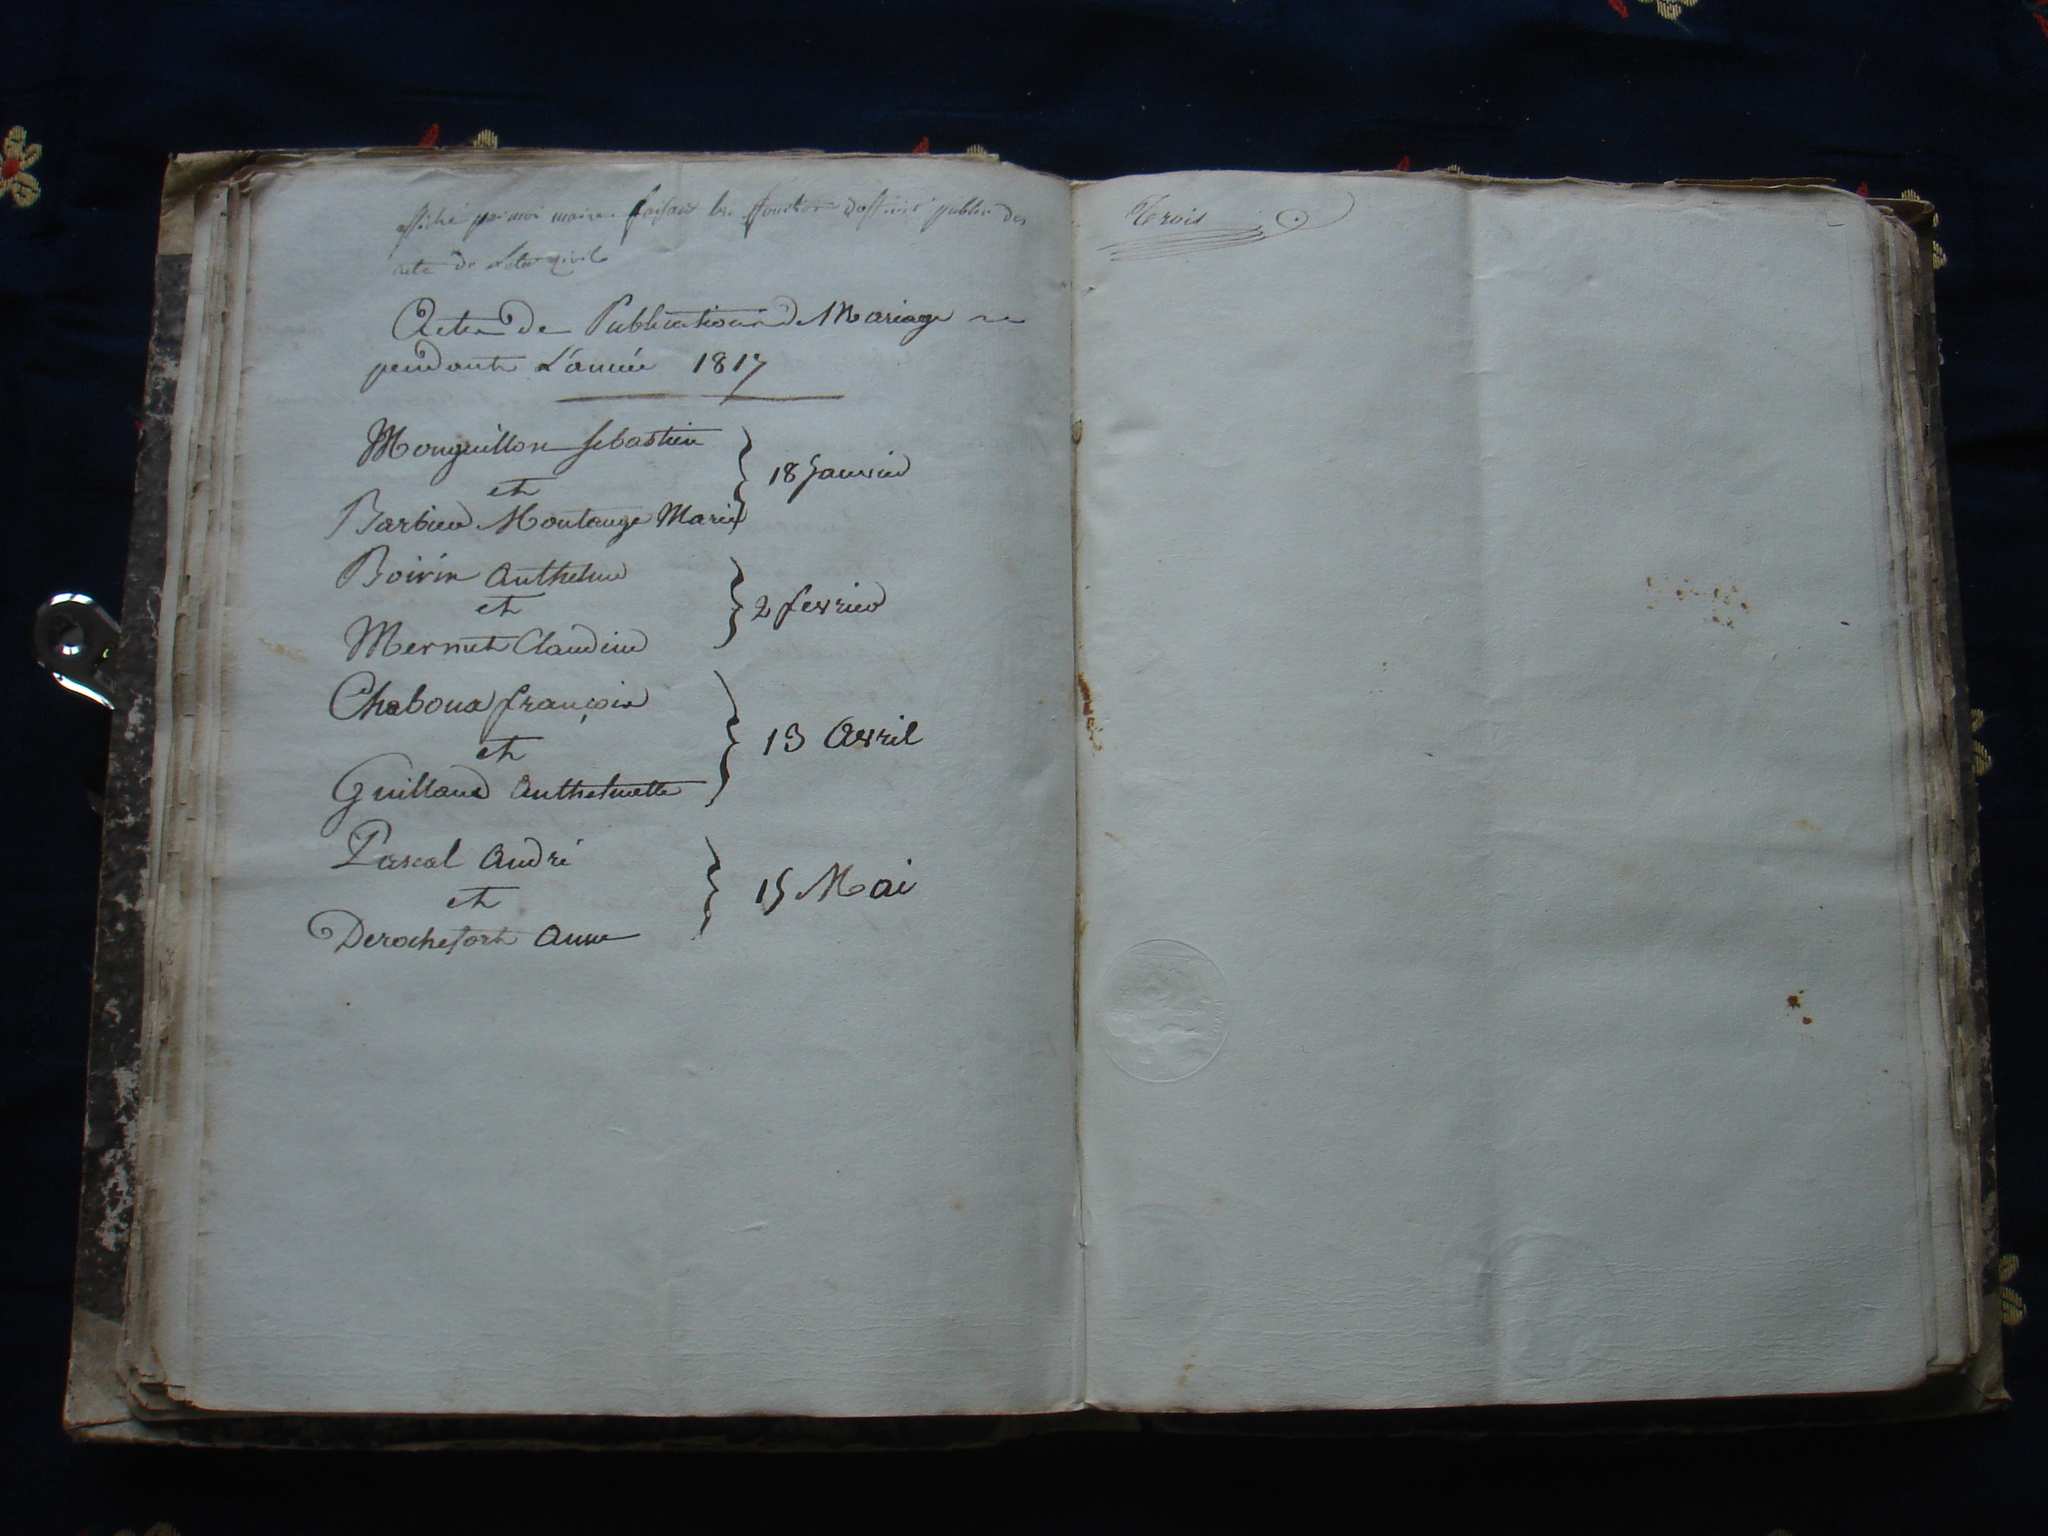 affiché par moi maire faisant les fonction dofficié public des
acte de Letat civile
Actes de Publications de Mariage
pendant L'année 1817
Monguillon sebastien
et
Barbier Montange Marie
18 Janvier
Boivin Anthelme
et
Mermet Claudine
2 fevrier
Chaboux françois
et
Guilland Anthelmette
13 Avril
Pascal André
et
Derochefort Anne
15 Mai
Trois